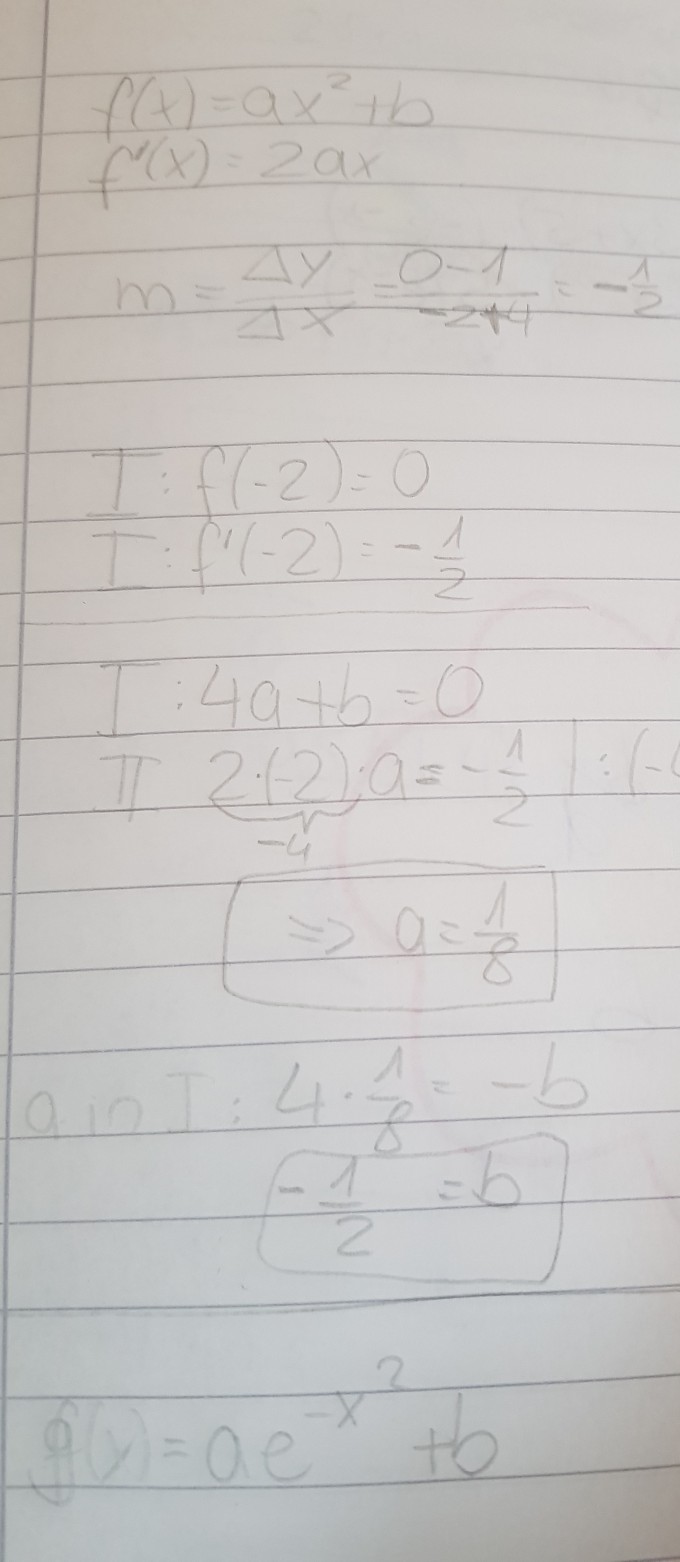 f(x) = ax² + b
f'(x) = 2ax
m = Δy/Δx = (0-1)/(-2+4) = -1/2
I: f(-2) = 0
I: f'(-2) = -1/2
I: 4a+b = 0
II 2·(-2)·a = -1/2 | : (-
-4
=> a = 1/8
a in I: 4 · 1/8 = -b
-1/2 = b
g(x) = ae^(-x²) + b